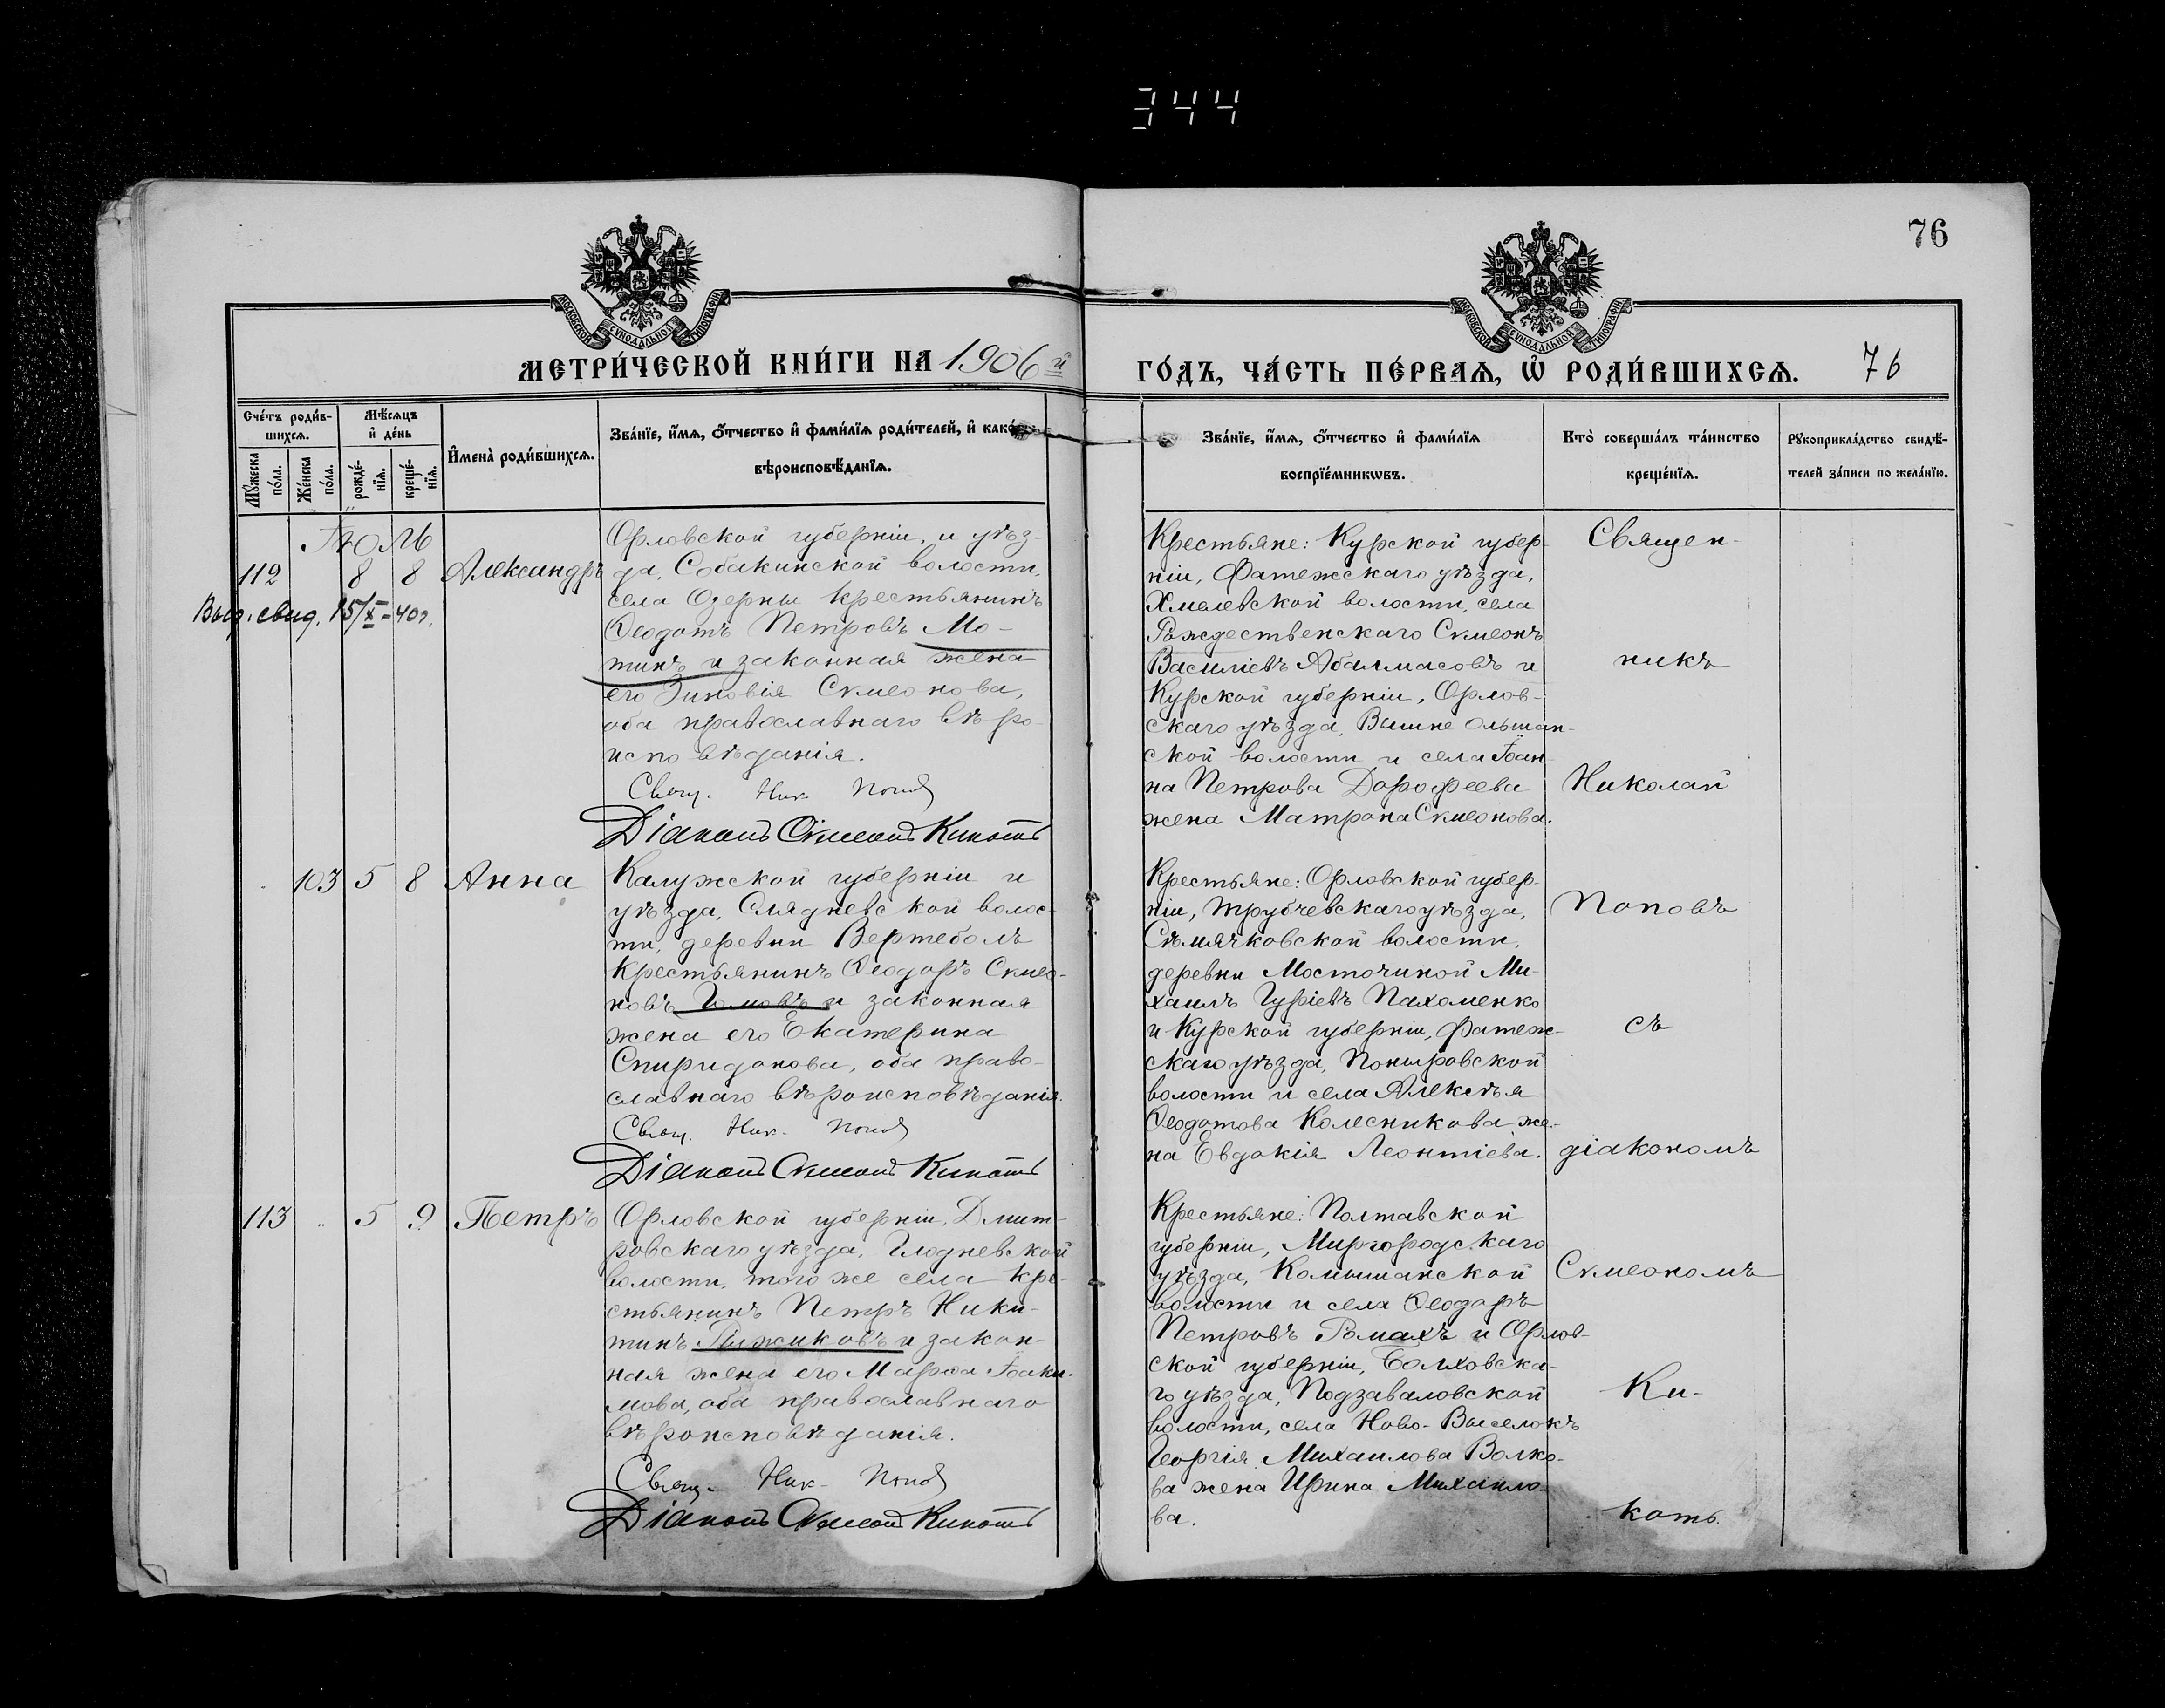 344
76
МОСКОВСКОЙ СУНОДАЛЬНОЙ ТИПОГРАФІИ
МОСКОВСКОЙ СУНОДАЛЬНОЙ ТИПОГРАФІИ
МЕТРИ́ЧЕСКОЙ КНИ́ГИ НА 1906й
ГО́ДЪ, ЧА́СТЬ ПЕ́РВАѦ, Ѡ҆ РОДИ́ВШИХСѦ. 76
Сче́тъ роди́в-
шихсѧ.
Мѣ́сѧцъ
и҆ де́нь
Мꙋ́жеска
по́ла.
Же́нска
по́ла.
рожде́-
нїѧ.
креще́-
нїѧ.
И҆мена̀ роди́вшихсѧ.
Зва́нїе, и҆́мѧ, ѻ҆́тчество и҆ фами́лїѧ роди́телей, и҆ како́
вѣроисповѣ́данїѧ.
Зва́нїе, и҆́мѧ, ѻ҆́тчество и҆ фами́лїѧ
воспрїе́мникѡвъ.
Кто̀ соверша́лъ та́инство
креще́нїѧ.
Рꙋкоприкла́дство свидѣ́-
телей за́писи по жела́нїю.
Іюль
112 8 8 Александръ
Выд. свид. 15/X-40г.
Орловской губерніи, и уѣз-
да, Собакинской волости,
села Озерны крестьянинъ
Ѳеодотъ Петровъ Мо-
тинъ и законная жена
его Зиновія Сѵмеонова,
оба православнаго вѣро-
исповѣданія.
Свящ. Ник. Поповъ
Діаконъ Сѵмеонъ Кикоть
Крестьяне: Курской губер-
ніи, Фатежскаго уѣзда,
Хмелевской волости, села
Рождественскаго Сѵмеонъ
Василіевъ Абалмасовъ и
Курской губерніи, Орлов-
скаго уѣзда, Вышне Ольшан-
ской волости и села Іоан-
на Петрова Дорофеева
жена Матрона Сѵмеонова.
Священ-
никъ
Николай
103 5 8 Анна
Калужской губерніи и
уѣзда, Слядневской волос-
ти, деревни Вертеболъ
крестьянинъ Ѳеодоръ Сѵмео-
новъ и законная
жена его Екатерина
Спиридонова, оба право-
славнаго вѣроисповѣданія.
Свящ. Ник. Поповъ
Діаконъ Сѵмеонъ Кикоть
Крестьяне: Орловской губер-
ніи, Трубчевскаго уѣзда,
Сѣмячковской волости,
деревни Мосточиной Ми-
хаилъ Гуріевъ Пахоменко
и Курской губерніи, Фатеж-
скаго уѣзда, Поныровской
волости и села Алексѣя
Ѳеодотова Колесникова же-
на Евдокія Леонтіева.
Поповъ
съ
діакономъ
113 5 9 Петръ
Орловской губерніи, Дмит-
ровскаго уѣзда, Глодневской
волости, того же села кре-
стьянинъ Петръ Ники-
тинъ Рыжиковъ и закон-
ная жена его Марѳа Іоаки-
мова, оба православнаго
вѣроисповѣданія.
Свящ. Ник. Поповъ
Діаконъ Сѵмеонъ Кикоть
Крестьяне: Полтавской
губерніи, Миргородскаго
уѣзда, Комышанской
волости и села Ѳеодоръ
Петровъ Ромахъ и Орлов-
ской губерніи, Болховска-
го уѣзда, Подзаваловской
волости, села Ново-Выселокъ
Георгія Михаилова Волко-
ва жена Ирина Михаило-
ва.
Сѵмеономъ
Ки-
коть.